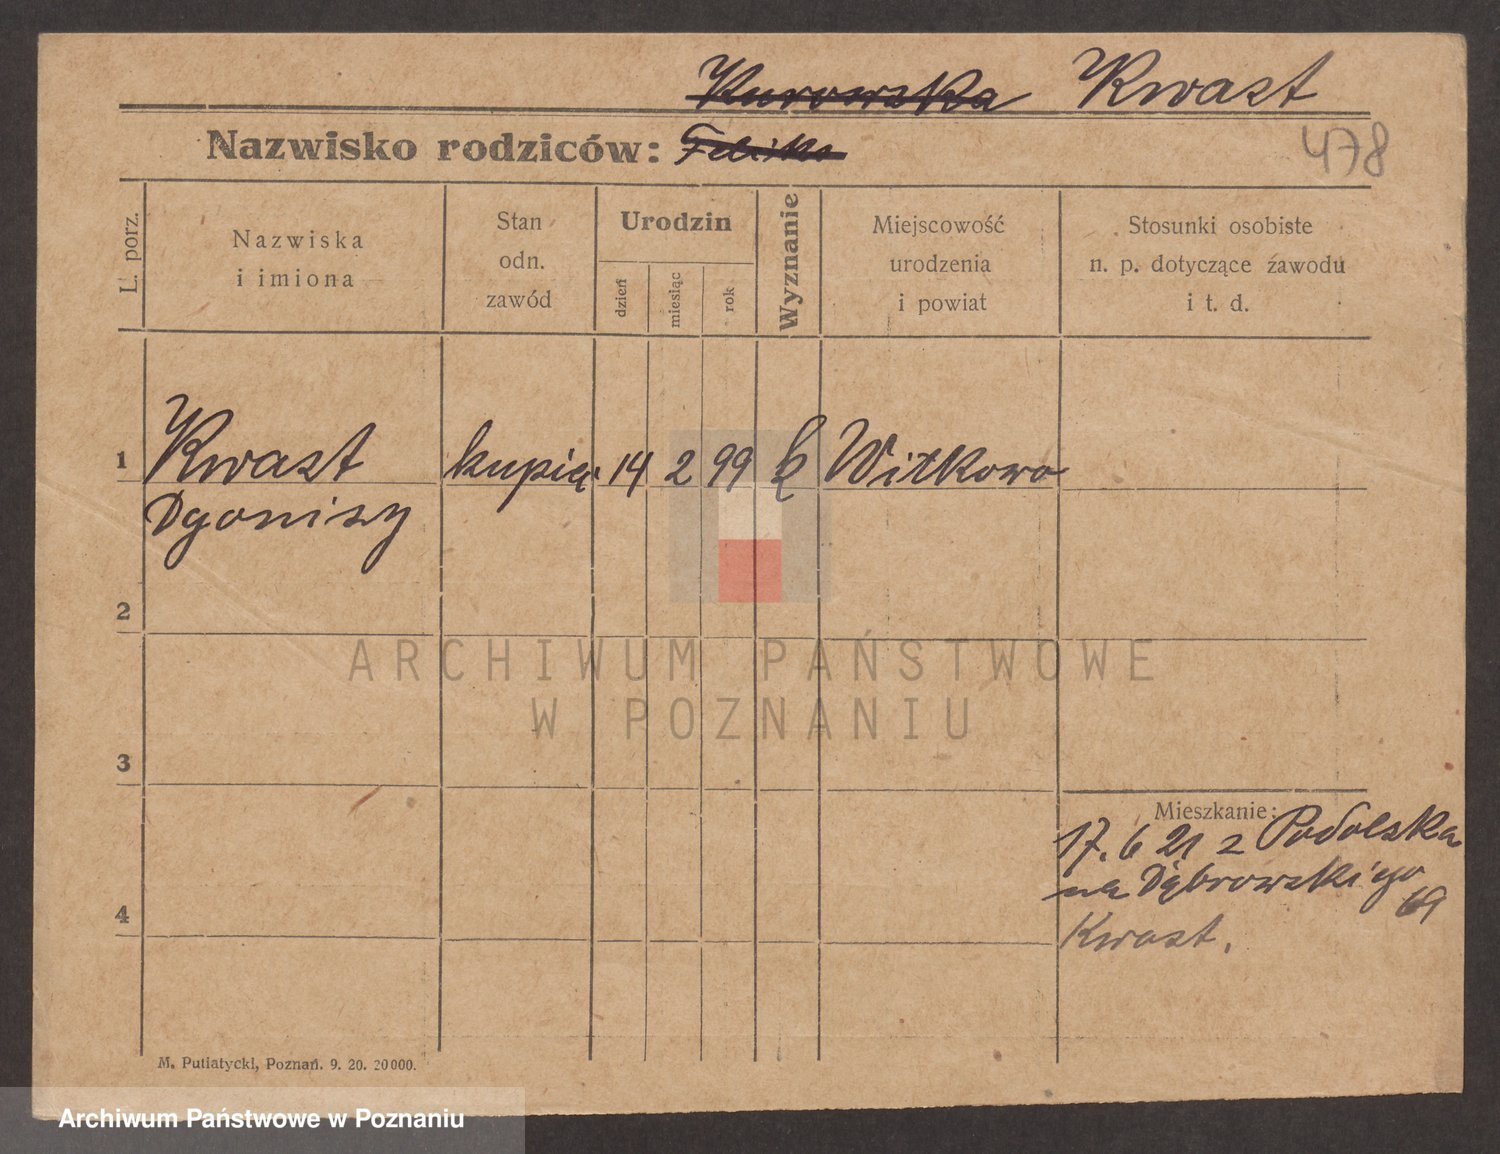 Kurowska Kwast
Nazwisko rodziców: Feliks
478
L. porz.
Nazwiska
i imiona
Stan
odn.
zawód
Urodzin
dzień
miesiąc
rok
Wyznanie
Miejscowość
urodzenia
i powiat
Stosunki osobiste
n. p. dotyczące zawodu
i t. d.
1 Kwast kupiec 14 2 99 k Witkowo
Dyonizy
2
3
Mieszkanie:
17. 6 21 z Podolska
na Dąbrowskiego
69
4
Kwast.
M. Putiatycki, Poznań. 9. 20. 20000.
ARCHIWUM PAŃSTWOWE
W POZNANIU
Archiwum Państwowe w Poznaniu